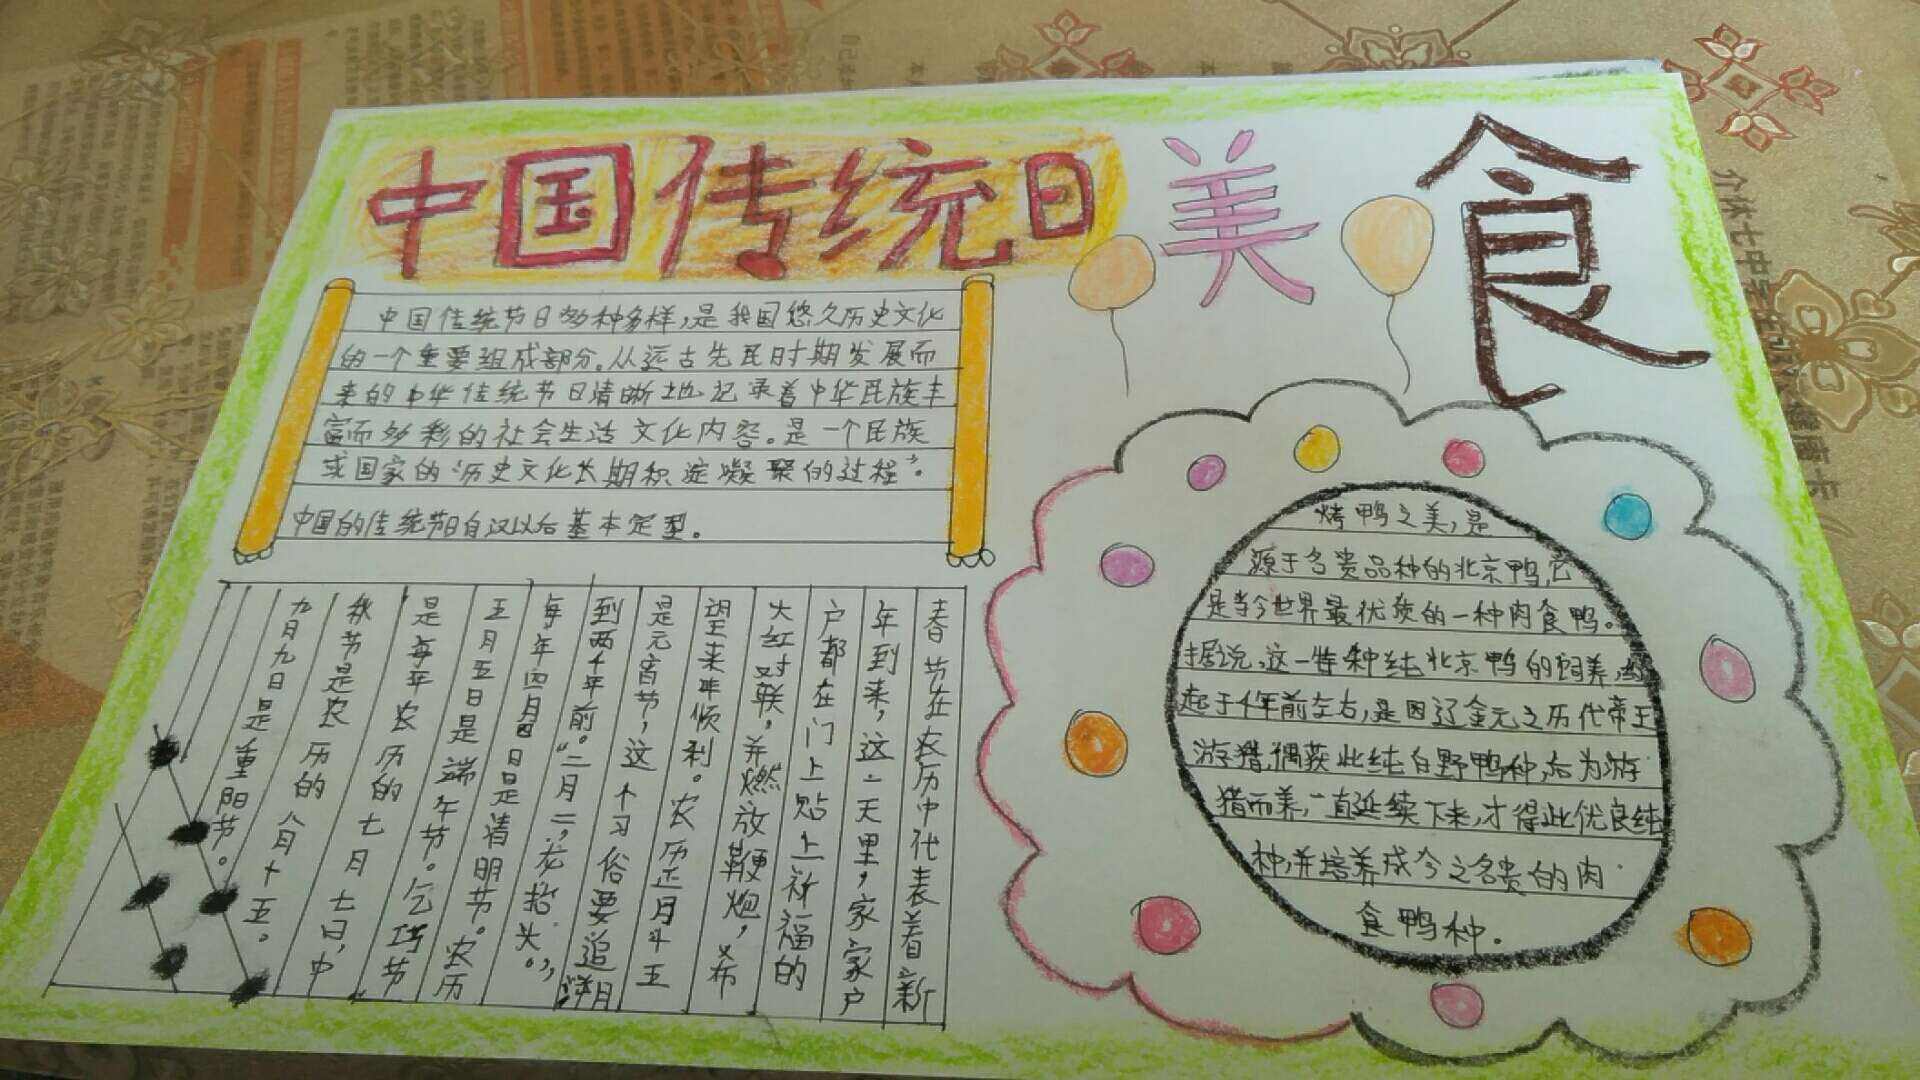 中国传统日
美
食
中国传统节日多种多样,是我国悠久历史文化
的一个重要组成部分。从远古先民时期发展而
来的中华传统节日清晰地记录着中华民族丰
富而多彩的社会生活文化内容。是一个民族
或国家的“历史文化长期积淀凝聚的过程”。
中国的传统节日自汉以后基本定型。
春节在农历中代表着新
年到来,这一天里,家家户
户都在门上贴上祈福的
大红对联,并燃放鞭炮,希
望来年顺利。农历正月十五
是元宵节,这个习俗要追
到两千年前。“二月二,龙抬头。”,
每年四月四日是清明节。农历
五月五日是端午节。乞巧节
是每年农历的七月七日,中
秋节是农历的八月十五。
九月九日是重阳节。
烤鸭之美,是
源于名贵品种的北京鸭,它
是当今世界最优质的一种肉食鸭。
据说,这一特种纯北京鸭的饲养,
起于千年前左右,是因辽金元之历代帝王
游猎,偶获此纯白野鸭种,后为游
猎而养,一直延续下来,才得此优良纯
种,并培养成今之名贵的肉
食鸭种.